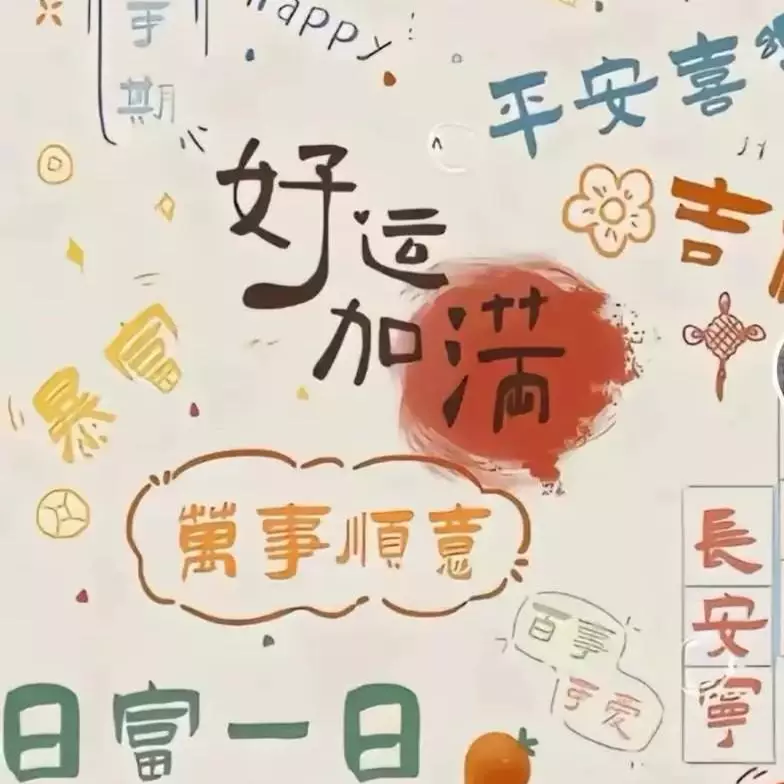 期
happy
平安喜
好运
加满
吉
暴富
萬事順意
長
安
寧
百事
爱
日富一日